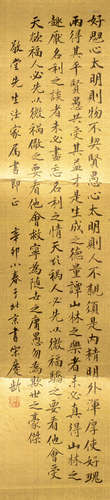 好醜心太明則物不契賢愚心太明則人不親須是內精明外渾厚使好醜
兩得其平賢愚共受其益才是生成的德量譚山林之樂者未必真得山林之
趣厭名利之談者未必盡忘名利之情天欲禍人必先以微福驕之要看他會受
天欲福人必先以微禍儆之要看他會救寧為隨世之庸愚勿為欺世之豪傑
敬堂先生法家屬書即正 辛卯春于北京